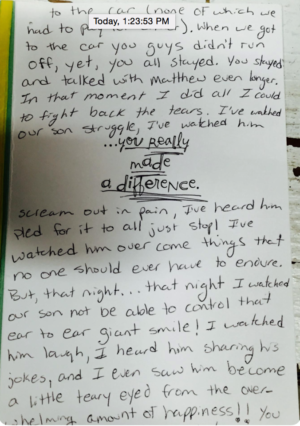 to the car (none of which we
Today, 1:23:53 PM
had to p er). When we got
to the car you guys didn't run
off, yet, you all stayed. You stayed
and talked with Matthew even longer.
In that moment I did all I could
to fight back the tears. I've watched
our son struggle, I've watched him
...you REally
made
a differeNce.
scream out in pain, I've heard him
pled for it to all just stop! I've
watched him over come things that
no one should ever have to endure.
But, that night... that night I watched
our son not be able to control that
ear to ear giant smile! I watched
him laugh, I heard him sharing his
jokes, and I even saw him become
a little teary eyed from the over-
whelming amount of happiness!! You